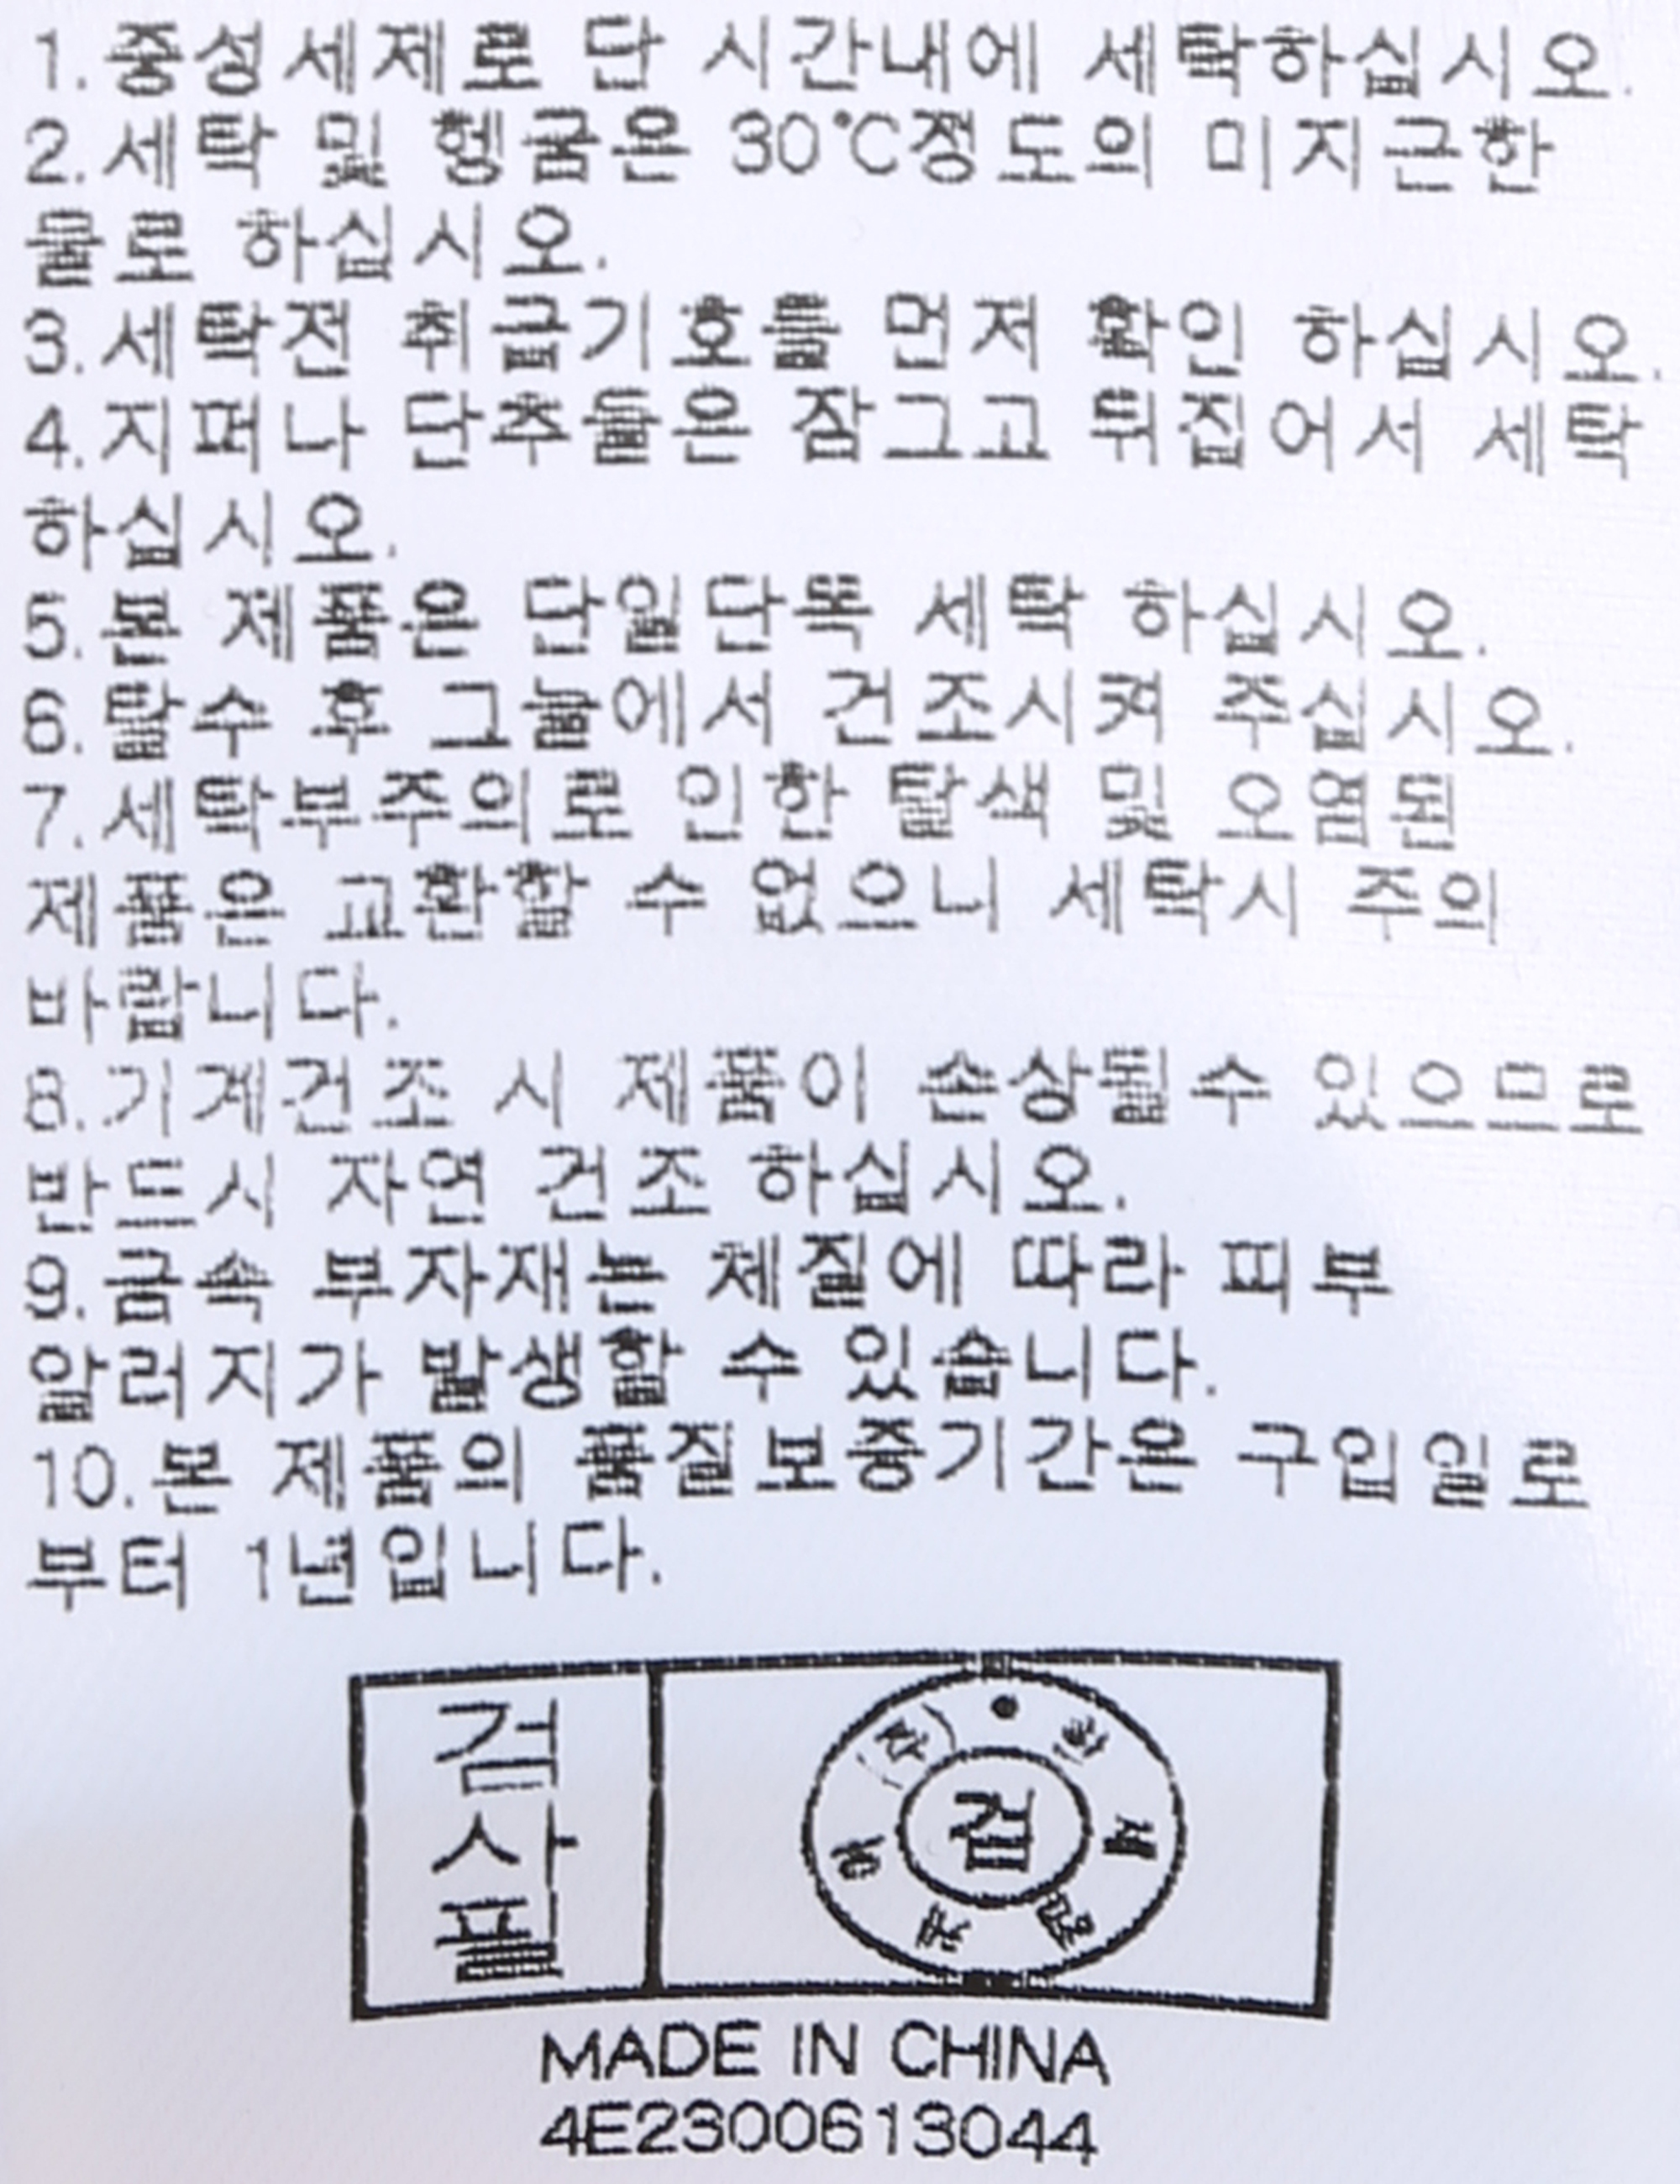 1.중성세제로 단 시간내에 세탁하십시오.
2.세탁 및 헹굼은 30°C정도의 미지근한
물로 하십시오.
3.세탁전 취급기호를 먼저 확인 하십시오.
4.지퍼나 단추들은 잠그고 뒤집어서 세탁
하십시오.
5.본 제품은 단일단독 세탁 하십시오.
6.탈수 후 그늘에서 건조시켜 주십시오.
7.세탁부주의로 인한 탈색 및 오염된
제품은 교환할 수 없으니 세탁시 주의
바랍니다.
8.기계건조 시 제품이 손상될수 있으므로
반드시 자연 건조 하십시오.
9.금속 부자재는 체질에 따라 피부
알러지가 발생할 수 있습니다.
10.본 제품의 품질보증기간은 구입일로
부터 1년입니다.
검사필
검
MADE IN CHINA
4E2300613044